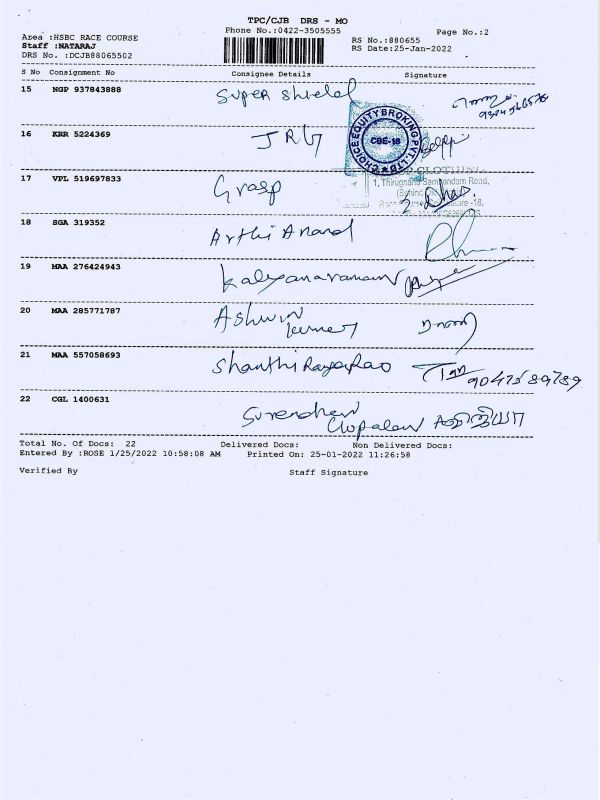 TPC/CJB DRS - MO
Phone No.:0422-3505555 Page No.:2
Area :HSBC RACE COURSE RS No.:880655
Staff :NATARAJ RS Date:25-Jan-2022
DRS No. :DCJB88065502
S No Consignment No Consignee Details Signature
15 NGP 937843888 Super Shield
CHOICE EQUITY BROKING PVT. LTD
CBE-18
16 KRR 5224369 JRG
17 VPL 519697833 Grasp
1, Thirugnana Sambandam Road,
18 SGA 319352 Arthi Anand
19 MAA 276424943 Kalyanaraman
20 MAA 285771787 Ashwin
kumar
21 MAA 557058693 Shanthi 9047589789
22 CGL 1400631 Surendran
Gopalan
Total No. Of Docs: 22 Delivered Docs: Non Delivered Docs:
Entered By :ROSE 1/25/2022 10:58:08 AM Printed On: 25-01-2022 11:26:58
Verified By Staff Signature